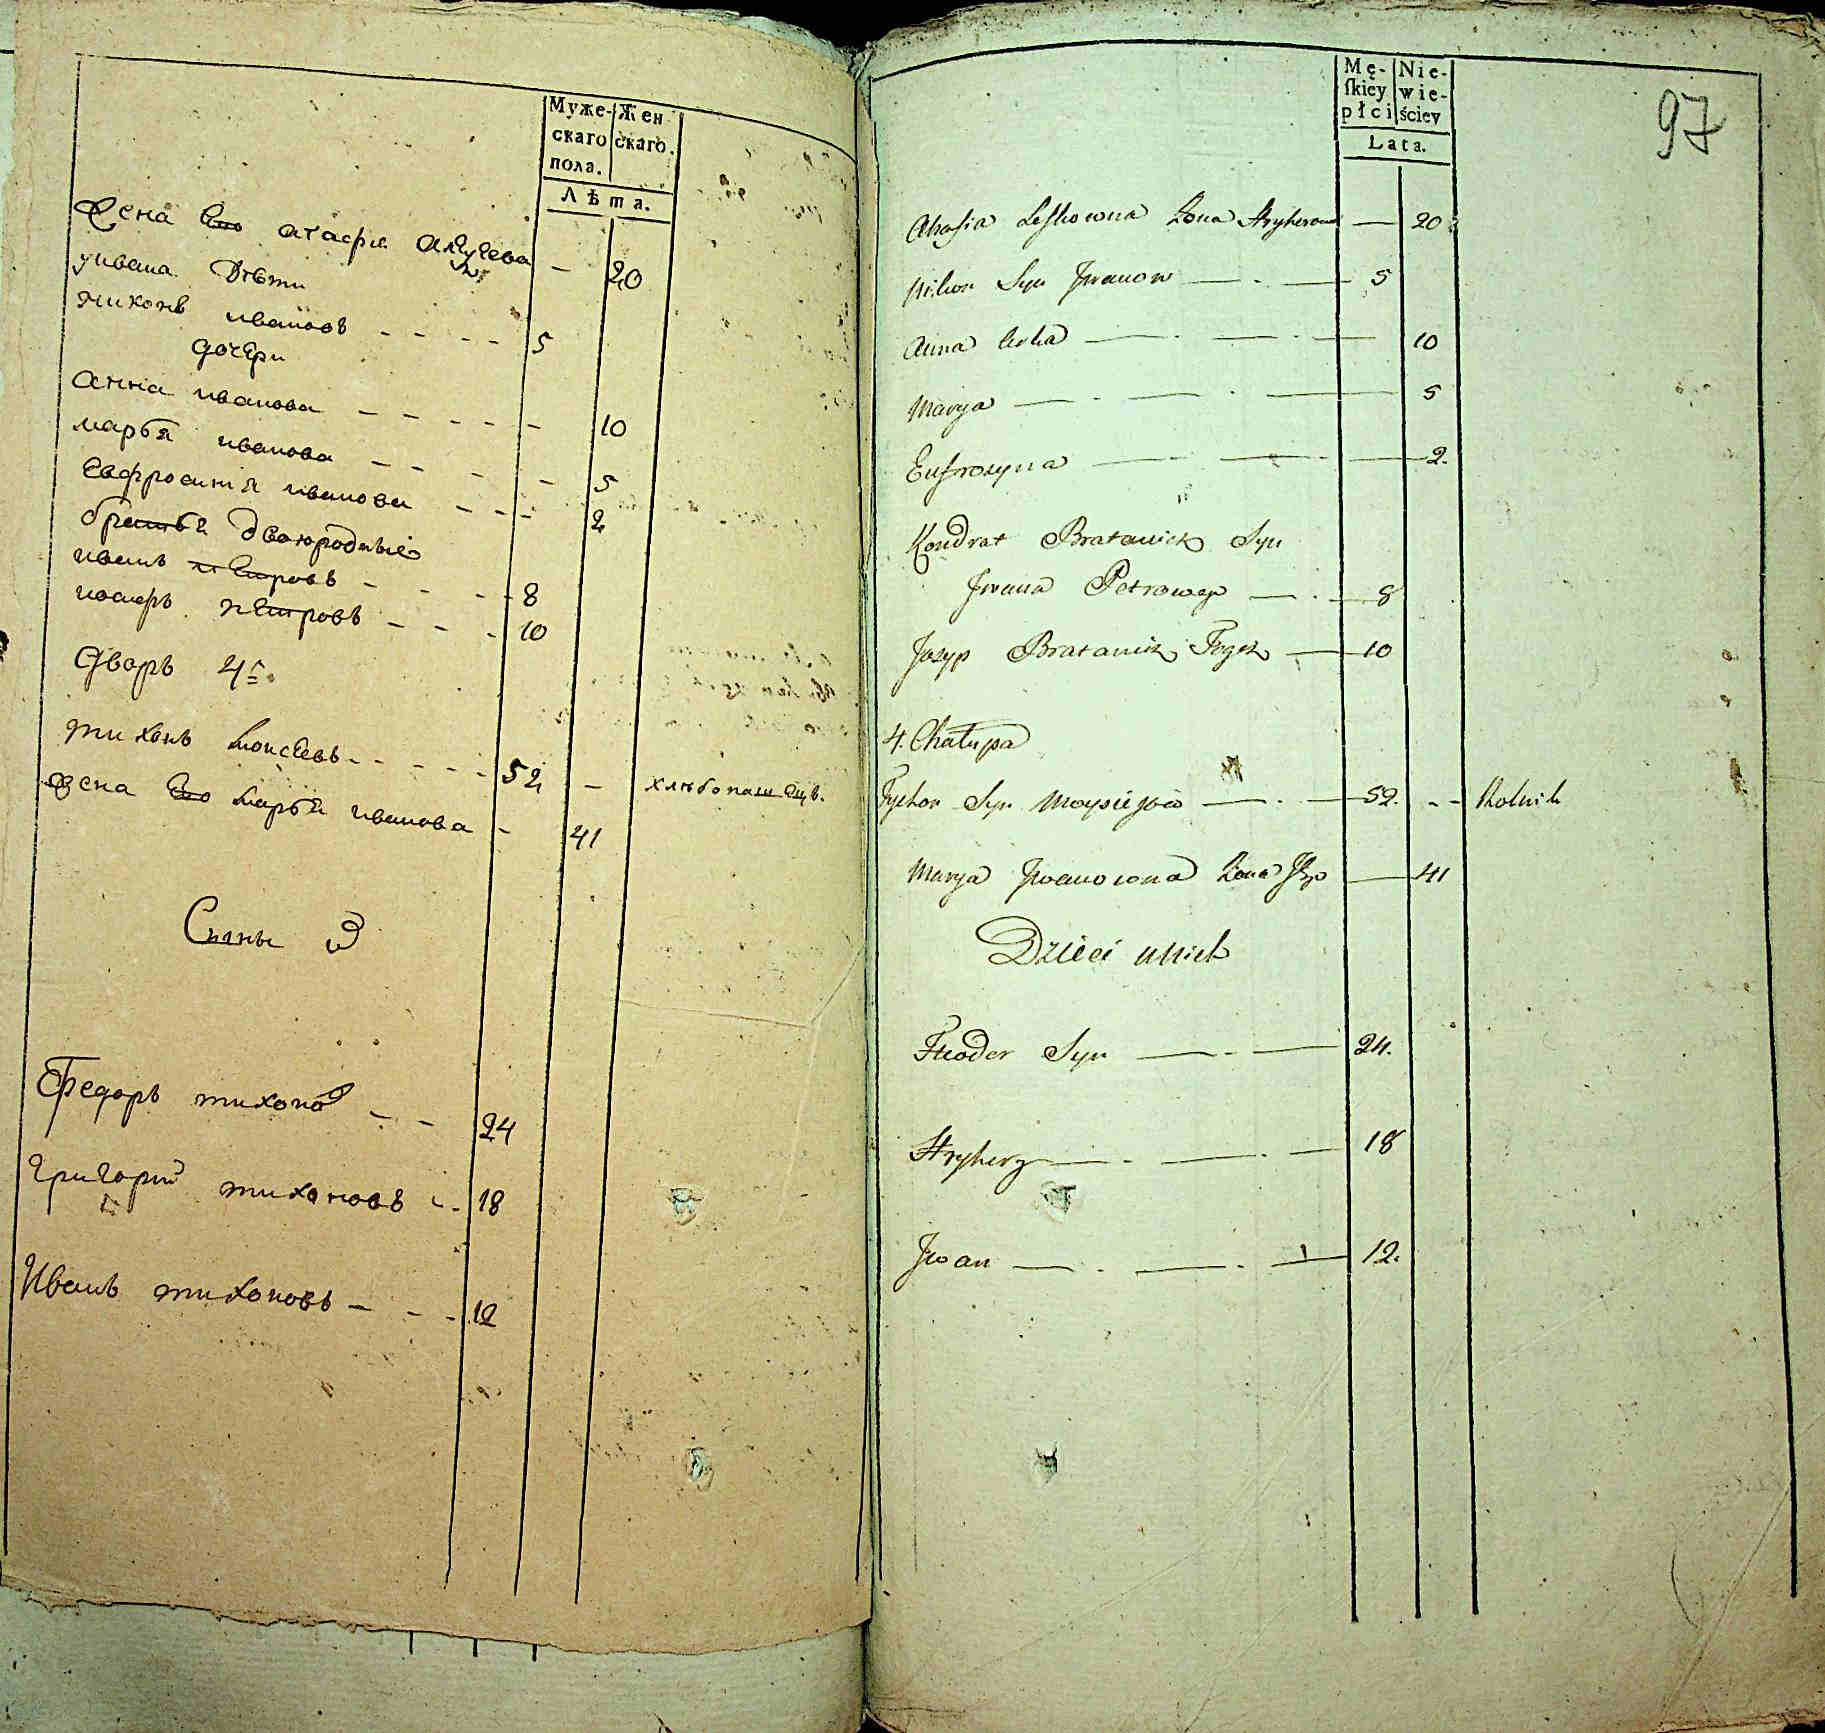 Муже-
скаго
пола.
Жен
скаго.
Лѣта.
Жена Его агафія — 20
уивана дѣти
никонъ ивановъ - - - - 5
дочери
анна иванова - - - - - 10
марья иванова - - - - - 5
Евфросинія иванова - - - 2
братья двоюродные
иванъ петровъ - - - 8
иосифъ петровъ - - - 10
дворъ 4й
тихонъ моисеевъ - - - - - 52 — хлѣбопашецъ.
жена Его марья иванова - 41
Сыны 3
Федоръ тихоно - - 24
григорий тихоновъ - - 18
Иванъ тихоновъ - - - 12
Mę-
ſkiey
płci
Nie-
wie-
ściey
Lata.
97
Ahafia Leſkowna Żona Hryherowa — 20
Nikon Syn Jwanow — . — 5
Anna Corka — . — . — 10
Marya — . — . — 5
Eufrozyna — . — . — 2.
Kondrat Bratanick Syn
Jwana Petrowego — . — 8
Jozyp Bratanick Tegoż — 10
4. Chałupa
Tychon Syn Moysiejow — . — 52. - - Rolnik
Marya Jwanowna Żona Jego — 41
Dzieci u Nich
Fteoder Syn — . — 24.
Hryhery — . — . — 18
Jwan — . — . — 12.